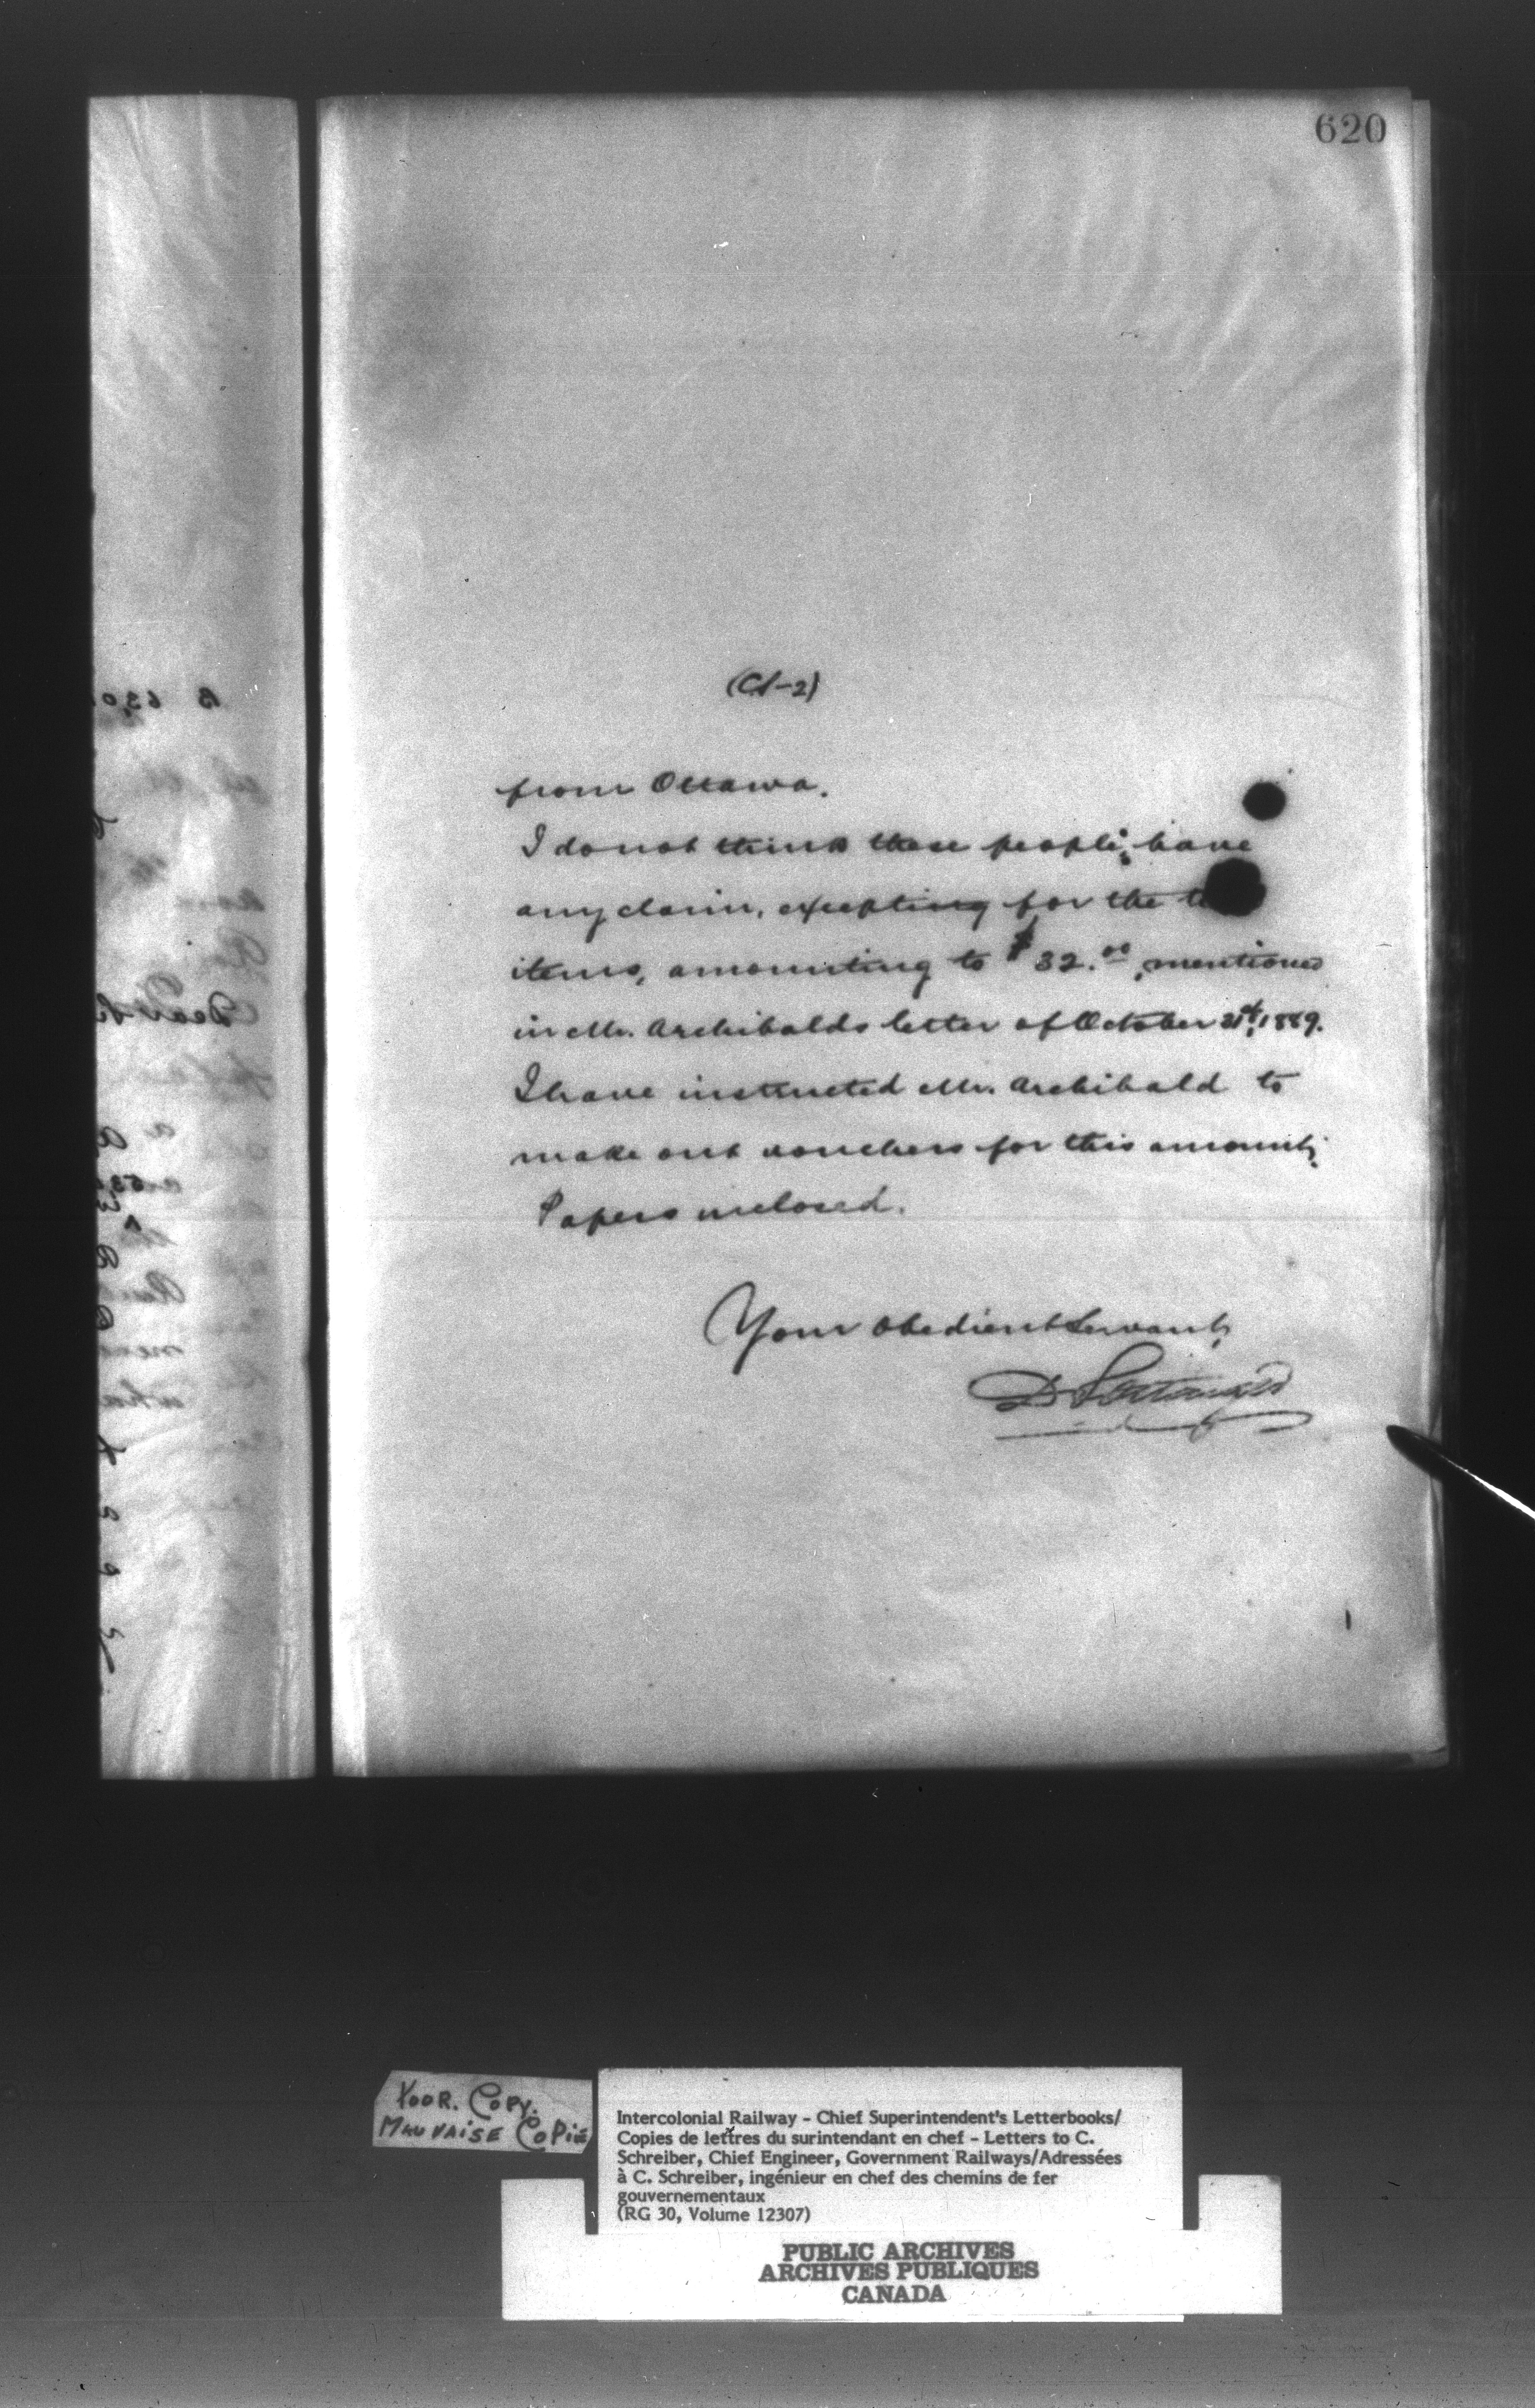 620
from Ottawa.
I do not think these people have
any claim, excepting for the
items, amounting to $32.00, mentioned
in Mr. Archibalds letter of October 21st, 1889.
I have instructed Mr. Archibald to
make out vouchers for this amount.
Papers enclosed.
Your obedient Servant,
D Pottinger
POOR. COPY.
MAUVAISE COPIE
Intercolonial Railway - Chief Superintendent's Letterbooks/
Copies de lettres du surintendant en chef - Letters to C.
Schreiber, Chief Engineer, Government Railways/Adressées
à C. Schreiber, ingénieur en chef des chemins de fer
gouvernementaux
(RG 30, Volume 12307)
PUBLIC ARCHIVES
ARCHIVES PUBLIQUES
CANADA